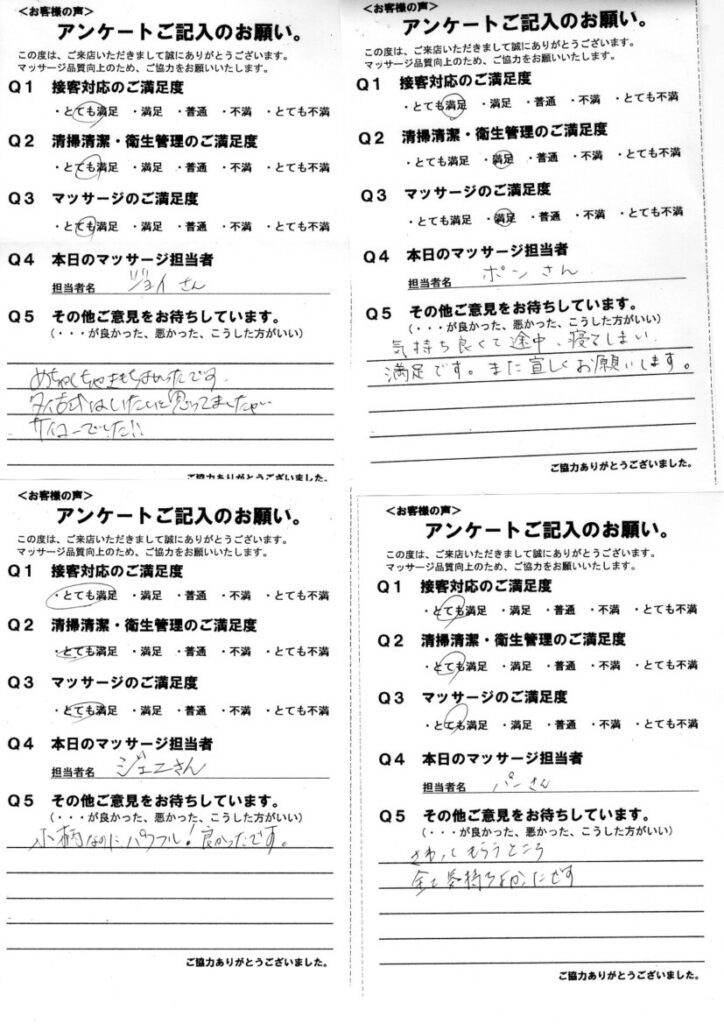 <お客様の声>
アンケートご記入のお願い。
この度は、ご来店いただきまして誠にありがとうございます。
マッサージ品質向上のため、ご協力をお願いいたします。
Q1 接客対応のご満足度
・とても満足 ・満足 ・普通 ・不満 ・とても不満
Q2 清掃清潔・衛生管理のご満足度
・とても満足 ・満足 ・普通 ・不満 ・とても不満
Q3 マッサージのご満足度
・とても満足 ・満足 ・普通 ・不満 ・とても不満
Q4 本日のマッサージ担当者
担当者名 ジョイさん
Q5 その他ご意見をお待ちしています。
(・・・が良かった、悪かった、こうした方がいい)
めちゃくちゃきもちよかったです。
タイ古式はいたいと思ってましたが、
サイコーでした!!
ご協力ありがとうございました。
<お客様の声>
アンケートご記入のお願い。
この度は、ご来店いただきまして誠にありがとうございます。
マッサージ品質向上のため、ご協力をお願いいたします。
Q1 接客対応のご満足度
・とても満足 ・満足 ・普通 ・不満 ・とても不満
Q2 清掃清潔・衛生管理のご満足度
・とても満足 ・満足 ・普通 ・不満 ・とても不満
Q3 マッサージのご満足度
・とても満足 ・満足 ・普通 ・不満 ・とても不満
Q4 本日のマッサージ担当者
担当者名 ポンさん
Q5 その他ご意見をお待ちしています。
(・・・が良かった、悪かった、こうした方がいい)
気持ち良くて途中、寝てしまい
満足です。また宜しくお願いします。
ご協力ありがとうございました。
<お客様の声>
アンケートご記入のお願い。
この度は、ご来店いただきまして誠にありがとうございます。
マッサージ品質向上のため、ご協力をお願いいたします。
Q1 接客対応のご満足度
・とても満足 ・満足 ・普通 ・不満 ・とても不満
Q2 清掃清潔・衛生管理のご満足度
・とても満足 ・満足 ・普通 ・不満 ・とても不満
Q3 マッサージのご満足度
・とても満足 ・満足 ・普通 ・不満 ・とても不満
Q4 本日のマッサージ担当者
担当者名 ジェニさん
Q5 その他ご意見をお待ちしています。
(・・・が良かった、悪かった、こうした方がいい)
小柄なのにパワフル!良かったです。
ご協力ありがとうございました。
<お客様の声>
アンケートご記入のお願い。
この度は、ご来店いただきまして誠にありがとうございます。
マッサージ品質向上のため、ご協力をお願いいたします。
Q1 接客対応のご満足度
・とても満足 ・満足 ・普通 ・不満 ・とても不満
Q2 清掃清潔・衛生管理のご満足度
・とても満足 ・満足 ・普通 ・不満 ・とても不満
Q3 マッサージのご満足度
・とても満足 ・満足 ・普通 ・不満 ・とても不満
Q4 本日のマッサージ担当者
担当者名 パーさん
Q5 その他ご意見をお待ちしています。
(・・・が良かった、悪かった、こうした方がいい)
さわってもらうところ
全て気持ちよかったです
ご協力ありがとうございました。